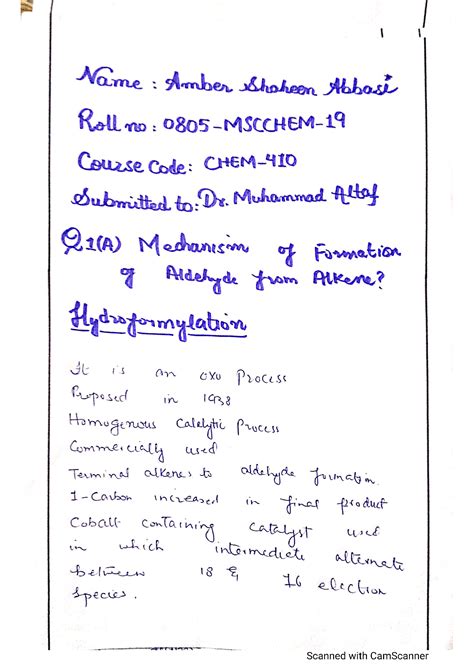 Name : Amber Shaheen Abbasi
Roll no : 0805-MSCCHEM-19
Course Code: CHEM-410
Submitted to: Dr. Muhammad Altaf
Q1(A) Mechanism of Formation
of Aldehyde from Alkene?
Hydroformylation
It is an oxo Process
Proposed in 1938
Homogenous Catalytic Process
Commercially used
Terminal alkenes to aldehyde formation
1-Carbon increased in final product
Cobalt containing catalyst used
in which intermediate alternate
between 18 & 16 election
species.
Scanned with CamScanner